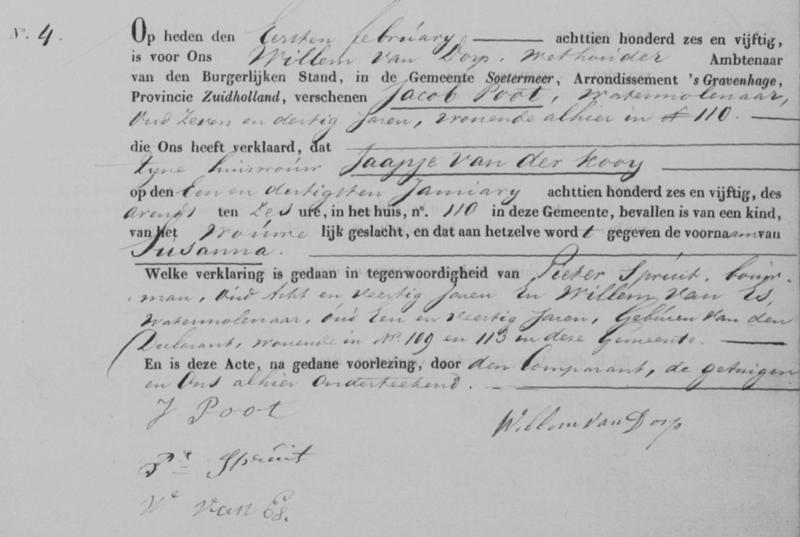 No. 4.
Op heden den Eersten february achttien honderd zes en vijftig,
is voor Ons Willem van Dorp, wethouder Ambtenaar
van den Burgerlijken Stand, in de Gemeente Soetermeer, Arrondissement 's Gravenhage,
Provincie Zuidholland, verschenen Jacob Poot, Watermolenaar,
Oud Zeven en dertig Jaren, wonende alhier in No 110.
die Ons heeft verklaard, dat
Zyne huisvrouw Jaapje van der Kooy
op den Een en dertigsten January achttien honderd zes en vijftig, des
avonds ten Zes ure, in het huis, no. 110 in deze Gemeente, bevallen is van een kind,
van het vrouwe lijk geslacht, en dat aan hetzelve wordt gegeven de voornaam van
Susanna.
Welke verklaring is gedaan in tegenwoordigheid van Pieter Spruit, bouw-
man, Oud Acht en veertig Jaren En Willem van Es,
Watermolenaar, Oud Een en veertig Jaren, Geburen van den
Declarant, wonende in No. 109 en 113 in deze Gemeente.
En is deze Acte, na gedane voorlezing, door den Comparant, de getuigen
en Ons alhier Onderteekend.
J Poot
Willem van Dorp
Pr Spruit
Wm van Es.